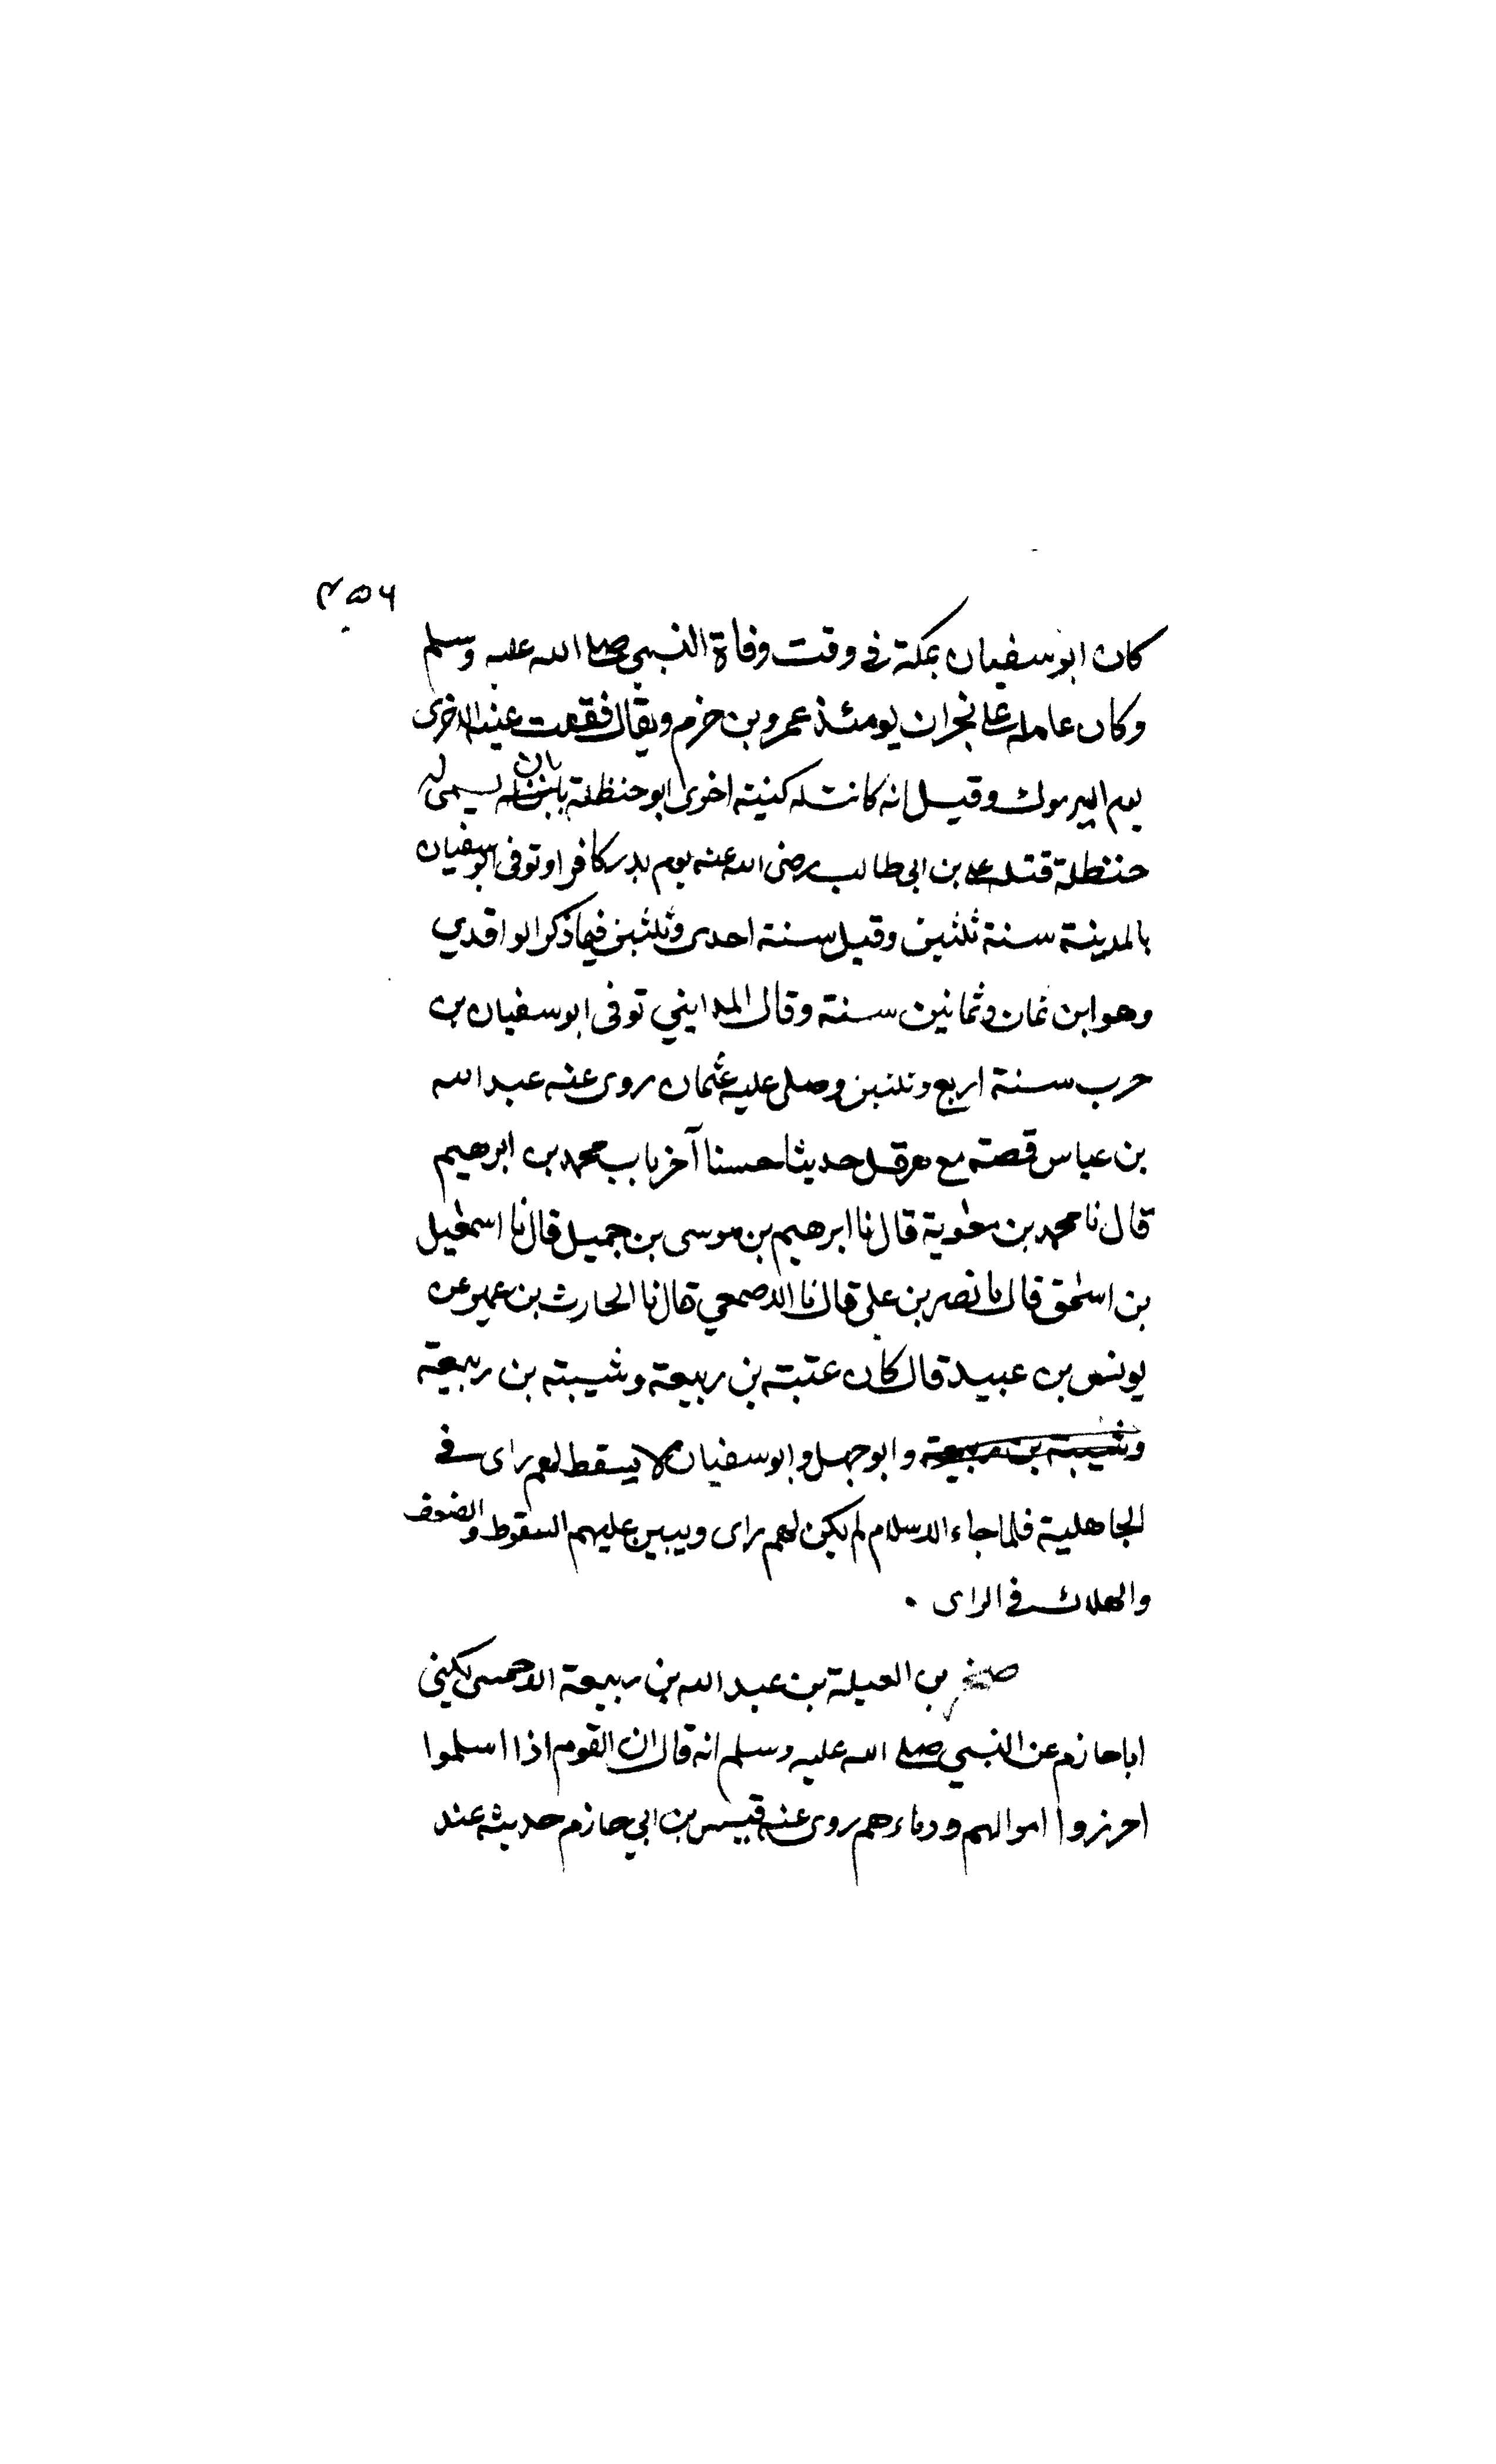 ۴۵۶
كان ابو سفيان بمكة في وقت وفاة النبي صلى الله عليه وسلم
وكان عامله على نجران يومئذ عمرو بن حزم ويقال فقعت عينه الاخرى
يوم اليرموك وقيل انه كانت له كنيته اخرى ابو حنظلة بابن له يسمى له
حنظلة قتله على بن ابي طالب رضى الله عنه يوم بدر كافرا وتوفى ابو سفيان
بالمدينة سنة ثلثين وقيل سنة احدى وثلثين فيما ذكر الواقدي
وهو ابن ثمان وثمانين سنة وقال المدايني توفى ابو سفيان بن
حرب سنة اربع وثلثين وصلى عليه عثمان روى عنه عبد الله
بن عباس قصته مع هرقل حديثا حسنا آخر باب محمد بن ابرهيم
قال نا محمد بن معوية قال نا ابرهيم بن موسى بن جميل قال نا اسمعيل
بن اسحق قال نا نصر بن على قال نا الاصمعي قال نا الحارث بن عمير عن
يونس بن عبيد قال كان عتبة بن ربيعة وشيبته بن ربيعة
وشيبة بن ربيعة وابو جهل وابو سفيان لا يسقط لهم راى في
الجاهلية فلما جاء الاسلام لم يكن لهم راى ويبين عليهم السقوط والضعف
والهلاك في الراى .
صخر بن العيلة بن عبد الله بن ربيعة الاحمسى يكنى
ابا حازم عن النبي صلى الله عليه وسلم انه قال ان القوم اذا اسلموا
احرزوا اموالهم ودماءهم روى عنه قيس بن ابي حازم حديثه عند